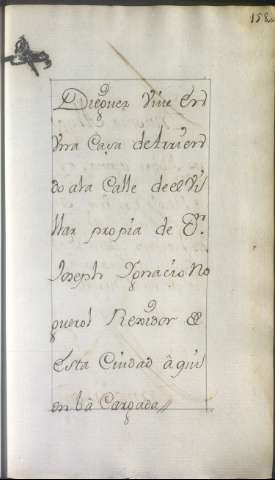 158
Dieguez Vive En
Vna Casa detririen
do ala Calle de el Vi
llar propia de Dn.
Joseph Ygnacio No
guerol Rexidor de
Esta Ciudad â quí
en bâ Cargada //